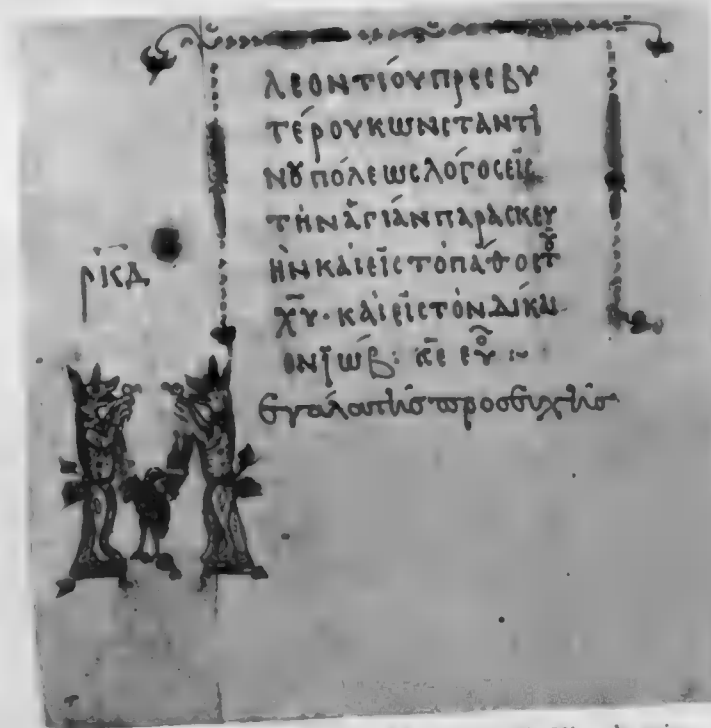 λεοντίου πρεσβυ
τέρου κωνσταντι
νȣπόλεως λόγος εἰς
τὴν ἁγίαν παρασκευ
ὴν καὶ εἰς τὸ πάθος τȣ͂
χ̅υ̅· καὶ εἰς τὸν δίκαι
ον ἰὼβ: κ̅ε̅ :~
ρκδ
Μεγάλα τῆς προσευχῆς